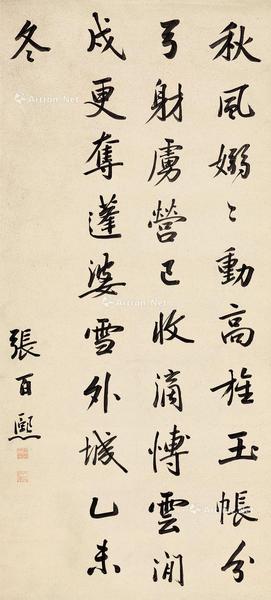 秋風嫋〻動高旌玉帳分
弓射虜營已收滴博雲間
戍更奪蓬婆雪外城乙未
冬
張百熙
Artron.Net